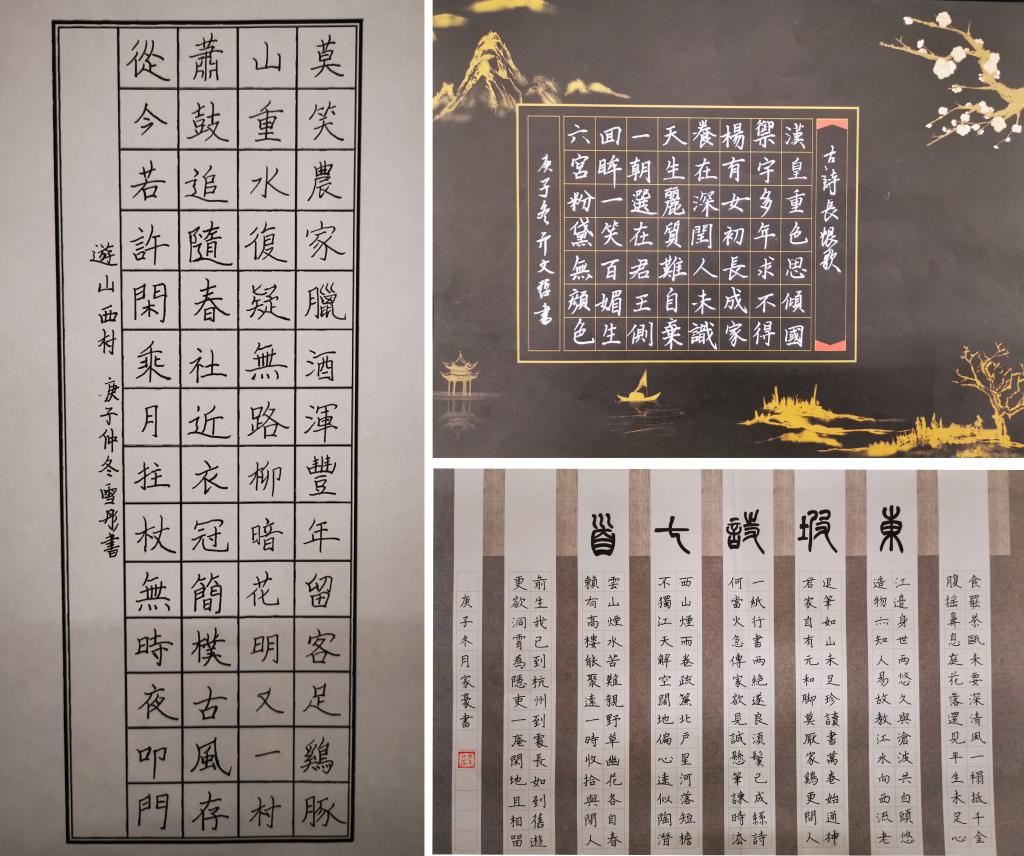 莫笑農家臘酒渾豐年留客足鷄豚
山重水復疑無路柳暗花明又一村
蕭鼓追隨春社近衣冠簡樸古風存
從今若許閑乘月拄杖無時夜叩門
遊山西村 庚子仲冬雪彤書
古詩長恨歌
漢皇重色思傾國
禦宇多年求不得
楊有女初長成家
養在深閨人未識
天生麗質難自棄
一朝選在君王側
回眸一笑百媚生
六宮粉黛無顏色
庚子冬亓文哲書
東坡詩七首
食罷茶甌未要深清風一榻抵千金
腹搖鼻息庭花落還見平生未足心
江邊身世兩悠久與滄波共白頭悠
造物亦知人易故教江水向西流老
退筆如山未足珍讀書萬卷始通神
君家自有元和脚莫厭家鷄更問人
一紙行書兩絕遂良須鬢已成絲詩
何當火急傳家欲見誠懸筆諫時法
西山煙雨卷疏簾北戶星河落短檐
不獨江天解空闊地偏心遠似陶潛
雲山煙水苦難親野草幽花各自春
賴有高樓能聚遠一時收拾與閒人
前生我已到杭州到處長如到舊遊
更欲洞霄為隱吏一庵閒地且相留
庚子冬月家豪書